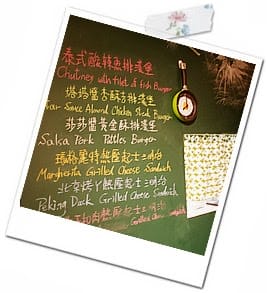 泰式酸辣魚排漢堡
Chutney with filet of fish Burger
塔塔醬杏酥吉排漢堡
Sauce Almond Chicken Steak Burger
莎莎醬黃金酥排漢堡
Salsa Pork Patties Burger
瑪格麗特熱壓起士三明治
Margherita Grilled Cheese Sandwich
北京烤丫熱壓起士三明治
Peking Duck Grilled Cheese Sandwich
肉熱壓起士三明治
Grilled Cheese